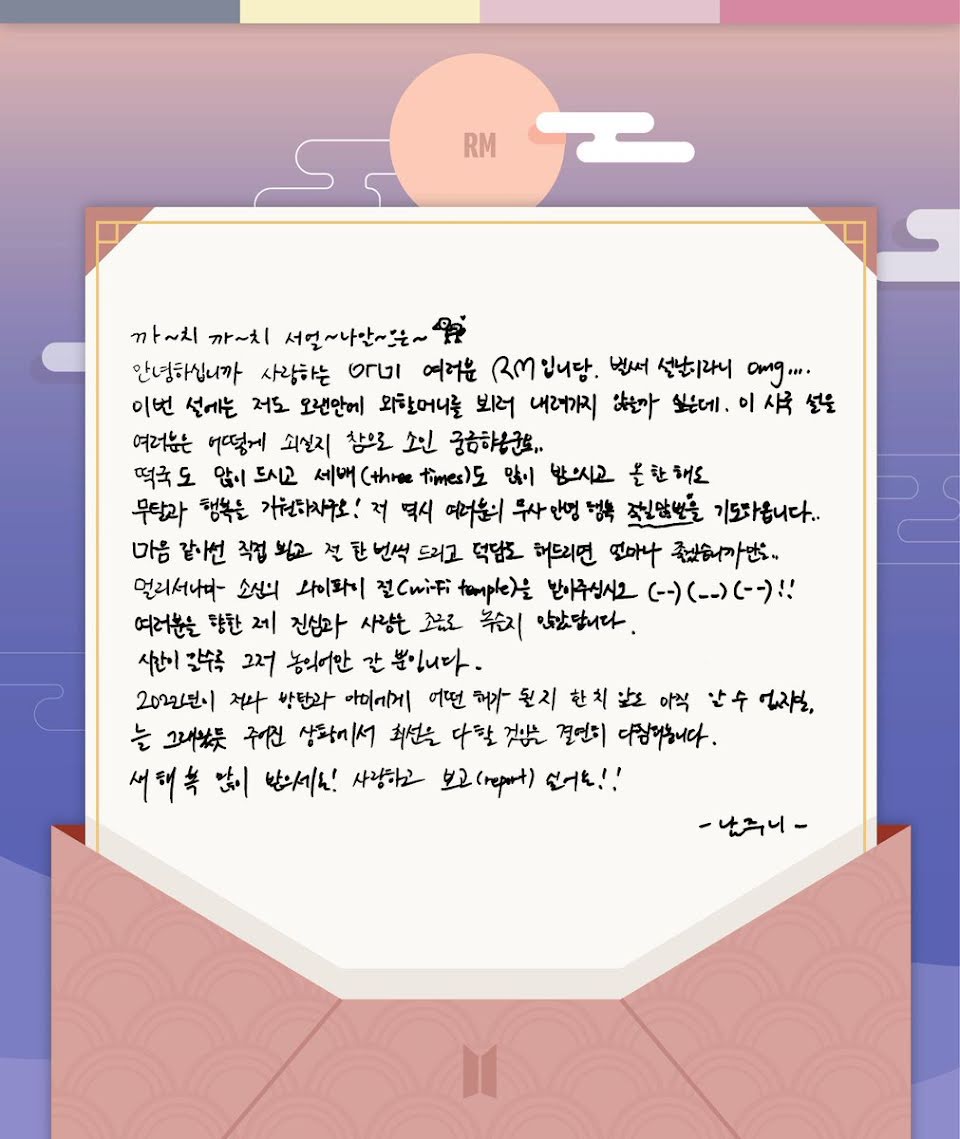 RM
까~치 까~치 서얼~나알~으은~
안녕하십니까 사랑하는 아미 여러분 RM입니당. 벌써 설날이라니 omg....
이번 설에는 저도 오랜만에 외할머니를 뵈러 내려가지 않을까 싶은데. 이 시국 설을
여러분은 어떻게 쇠실지 참으로 소인 궁금하옵군요..
떡국도 많이 드시고 세배(three times)도 많이 받으시고 올 한 해도
무탈과 행복을 기원하자구요! 저 역시 여러분의 무사 안녕 행복 조석일만번을 기도하옵니다..
마음 같아선 직접 뵙고 절 한 번씩 드리고 덕담도 해드리면 얼마나 좋겠습니까만은..
멀리서나마 소신의 와이파이 절(wi-fi temple)을 받아주십시오 (--)(__)(--)!!
여러분을 향한 제 진심과 사랑은 조금도 녹슬지 않았답니다.
시간이 갈수록 그저 농익어만 갈 뿐입니다.
2022년이 저와 방탄과 아미에게 어떤 해가 될지 한 치 앞도 아직 알 수 없지만,
늘 그래왔듯 주어진 상황에서 최선을 다할 것임을 결연히 다짐하옵니다.
새해 복 많이 받으세요! 사랑하고 보고(report) 싶어요!!
- 남주니 -